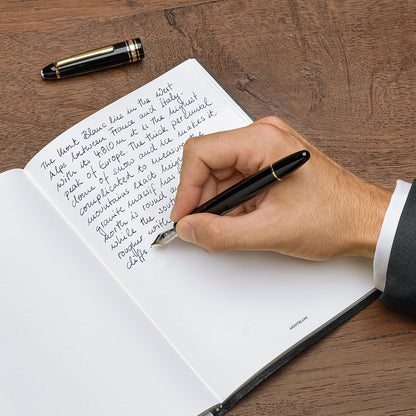 The Mont Blanc lies in the West
Alps between France and Italy.
With its 4810 m it is the highest
peak of Europe. The thick perennial
dome of snow and ice makes it
complicated to measure the
mountains exact heigh
granite massif has
north is round a
while the sout
rougher with
cliffs.
MONTBLANC